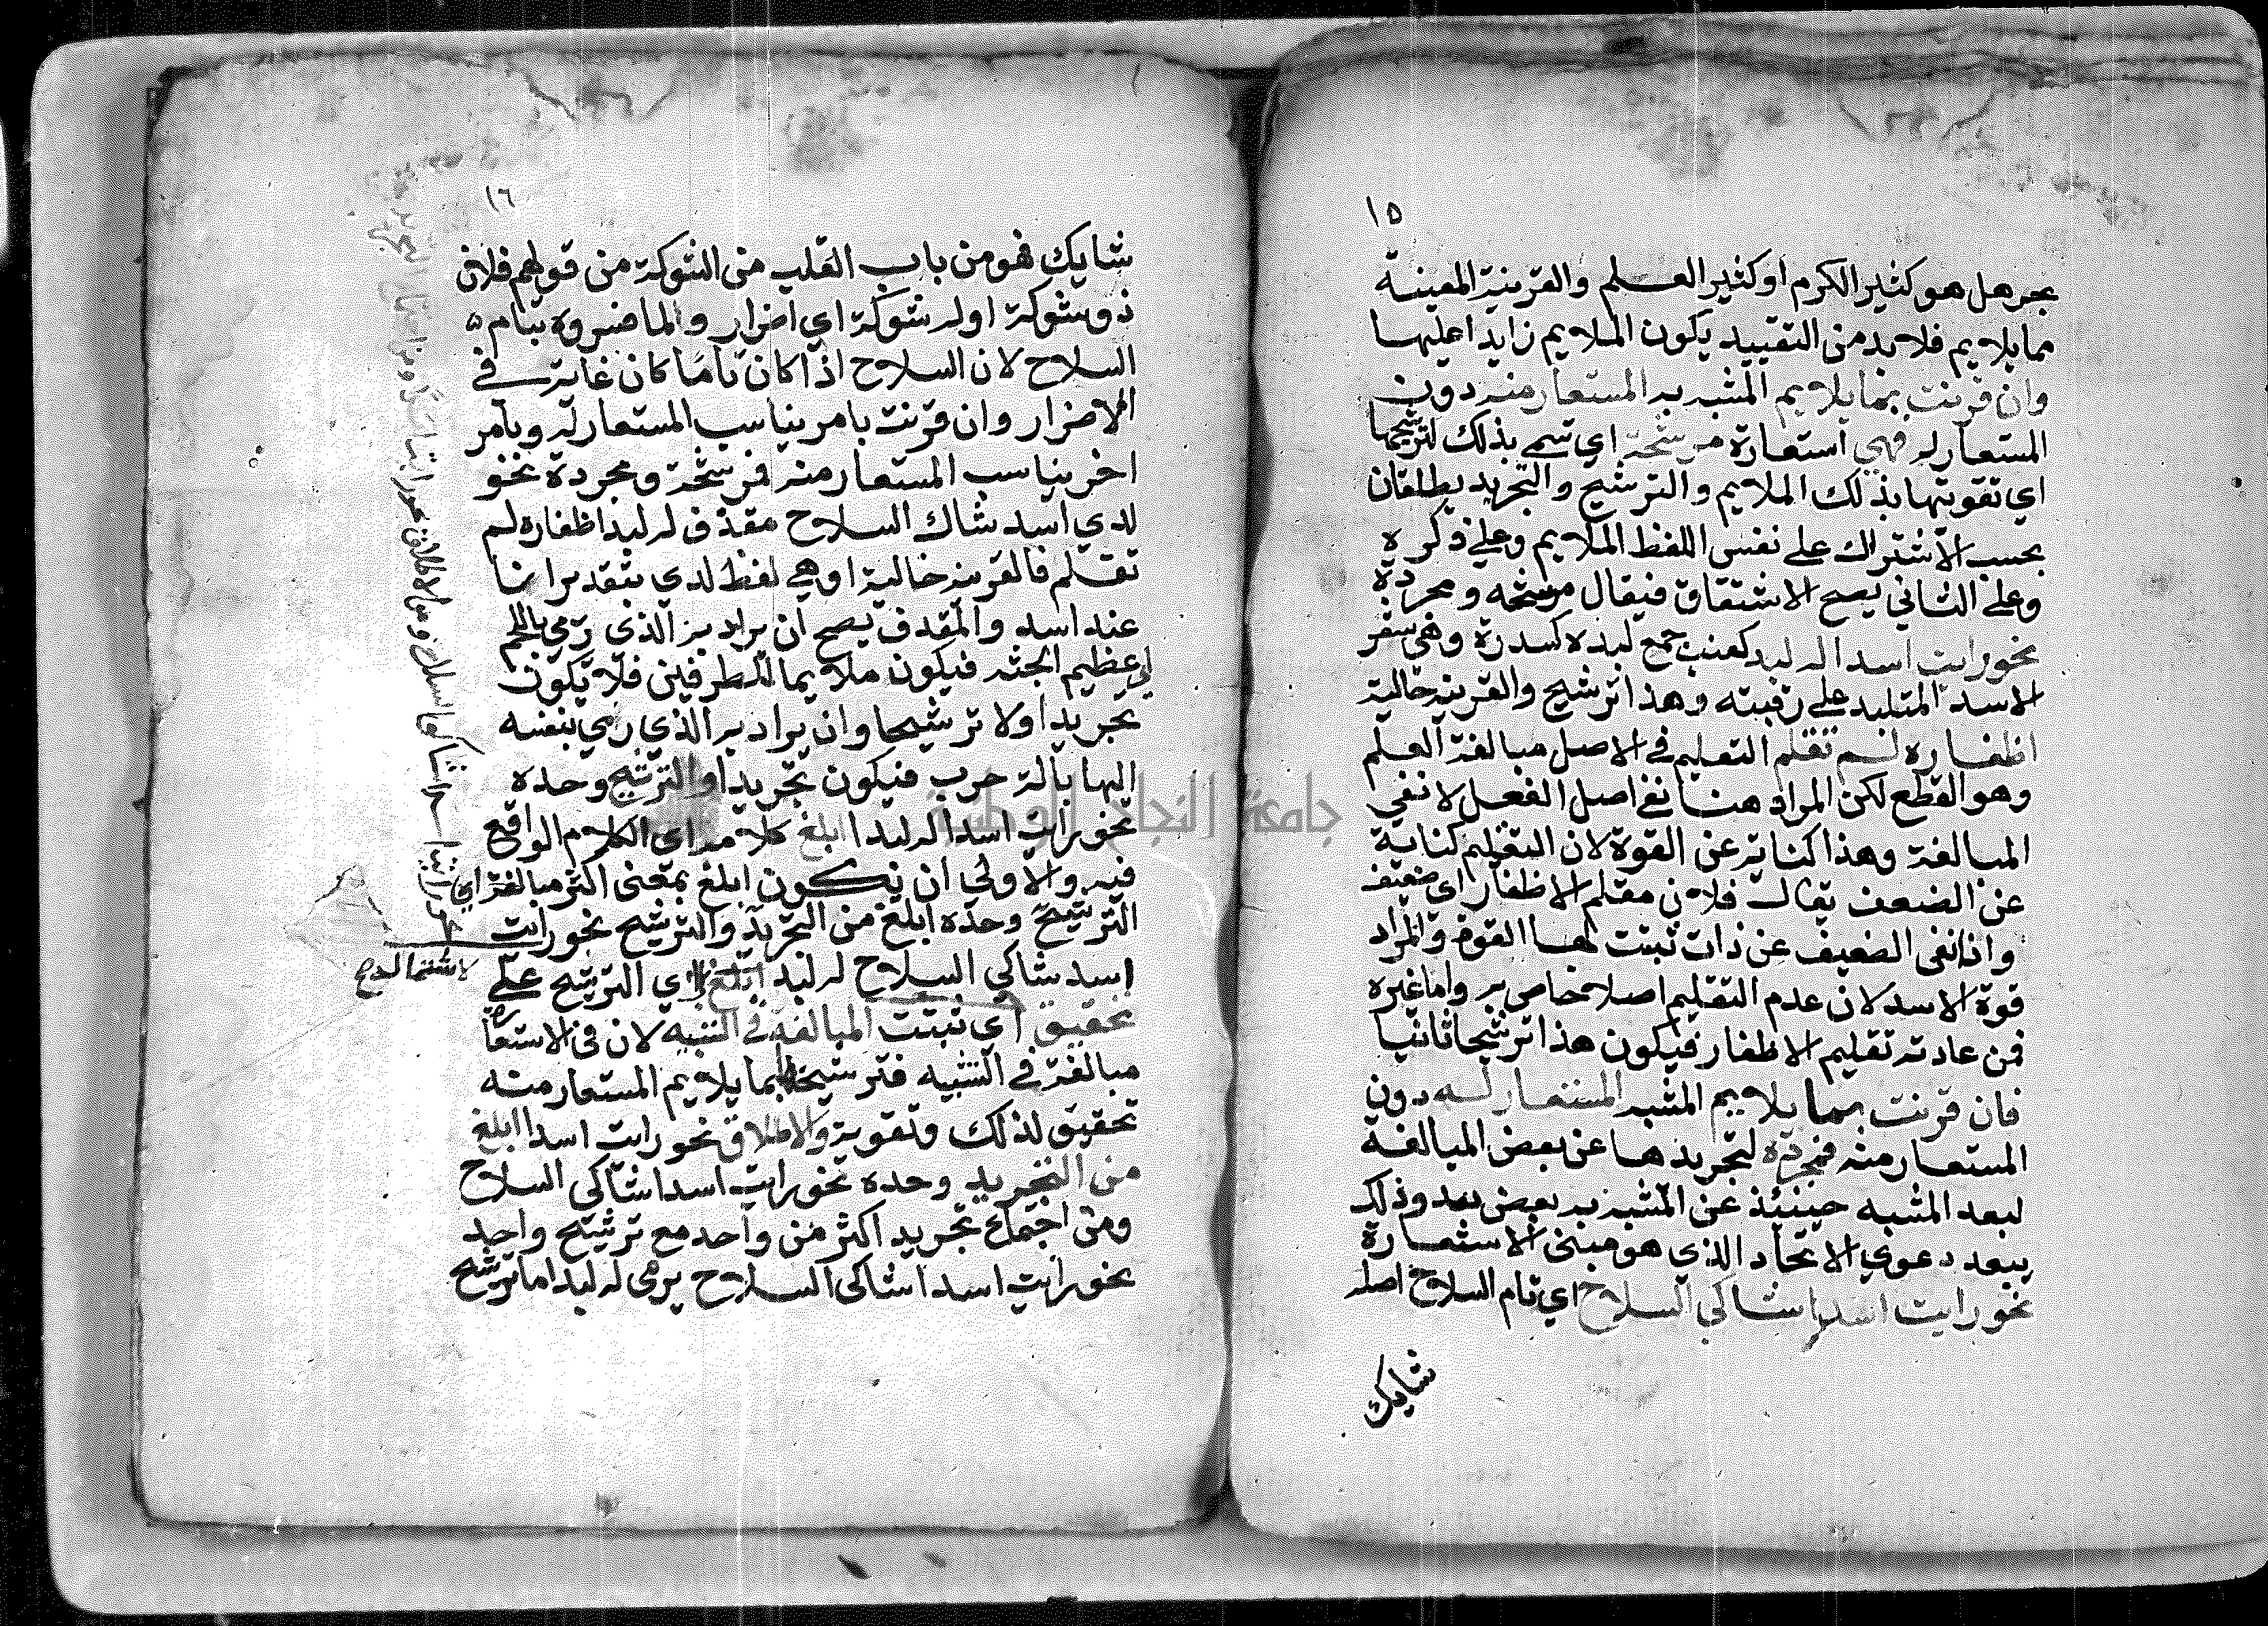 ١٥
بحر هل هو كثير الكرم او كثير العلم والقرينة المعينة
مما يلايم فلا بد من التقييد يكون الملايم زايدا عليها
وان قرنت بما يلايم المشبه به المستعار منه دون
المستعار له فهي استعارة مرشحة اي تسمي بذلك لترشيحها
اي تقويتها بذلك الملايم والترشيح والتجريد يطلقان
بحسب الاشتراك علي نفس اللفظ الملايم وعلي ذكره
وعلي الثاني يصح الاشتقاق فيقال مرشحه ومجردة
نحو رايت اسدا له لبد كعنب جمع لبده كسدرة وهي شعر
الاسد المتلبد علي رقبته وهذا ترشيح والقرينه حالية
اظفاره لم تقلم التقليم في الاصل مبالغة القلم
وهو القطع لكن المراد هنا نفي اصل الفعل لا نفي
المبالغة وهذا كناية عن القوة لان التقليم كناية
عن الضعف يقال فلان مقلم الاظفار اي ضعيف
واذا نفي الضعيف عن ذات تبنت لها القوة والمراد
قوة الاسد لان عدم التقليم اصلا خاص به واما غيره
فمن عادته تقليم الاظفار فيكون هذا ترشيحا ثانيا
فان قرنت بما يلاييم المشبه المستعار له دون
المستعار منه فمجردة لتجريدها عن بعض المبالغة
لبعد المشبه حينئذ عن المشبه به بعض بعد وذلك
يبعد دعوي الاتحاد الذي هو مبني الاستعارة
نحو رايت اسدا شاكي السلاح اي تام السلاح اصله
شايك
١٦
شايك فهو من باب القلب من الشوكة من قولهم فلان
ذو شوكة او له شوكة اي اضرار والما ضروه بتام
السلاح لان السلاح اذا كان تاما كان غاية في
الاضرار وان قرنت بامر يناسب المستعار له وبامر
اخر يناسب المستعار منه فمرشحة ومجردة نحو
لدي اسد شاك السلاح مقذف له لبد اظفاره لم
تقلم فالقرينه حالية او هي لفظ لدي بتقدير انا
عند اسد والمقدف يصح ان يراد به الذي رمي باللحم
اي عظيم الجثه فيكون ملايما للطرفين فلا يكون
تجريدا ولا ترشيحا وان يراد به الذي رمي بنفسه
الي بالة حرب فيكون تجريدا والترشيح وحده
نحو رايت اسدا له لبدا ابلغ كلامه اي الكلام الواقع
فيه والاولي ان يكون ابلغ بمعني اكثر مبالغة اي
الترشيح وحده ابلغ من التجريد والترشيح نحو رايت
اسد شاكي السلاح له لبد ابلغ اي الترشيح علي
تحقيق اي تبتت المبالغة في التشبيه لان في الاستعارة
مبالغة في التشبيه فترشيحها بما يلايم المستعار منه
تحقيق لذلك وتقوية والاطلاق نحو رايت اسدا ابلغ
من التجريد وحده نحو رايت اسدا شاكي السلاح
ومن اجتماع تجريد اكثر من واحد مع ترشيح واحد
نحو رايت اسدا شاكي السلاح يرمي له لبد اما ترشيح
لاشتماله